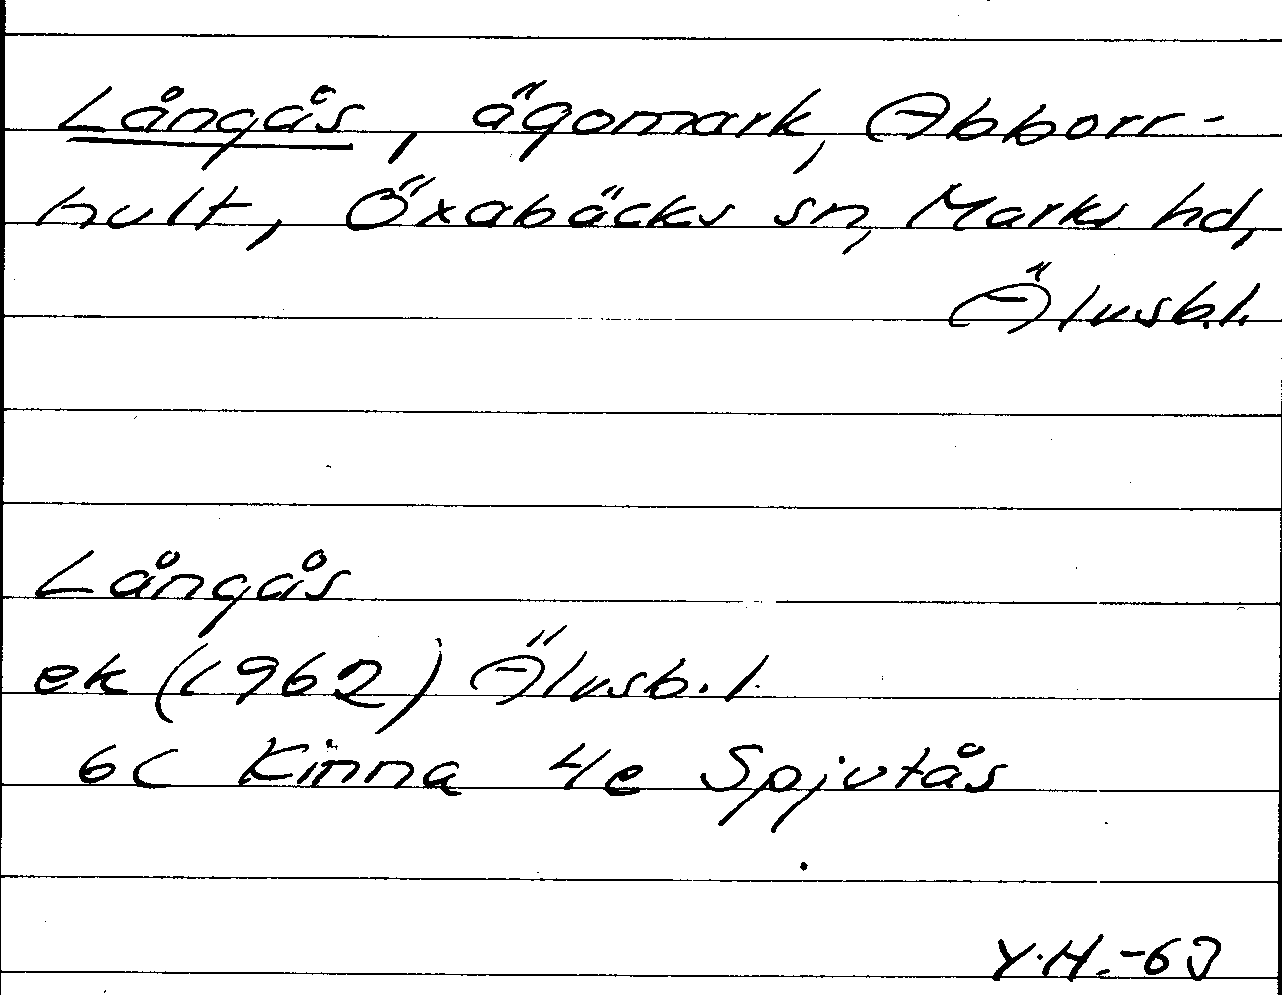 Långås, ägomark, Abborr-
hult, Öxabäcks sn, Marks hd,
Älvsb.l.
Långås
ek (1962) Älvsb.l.
6C Kinna 4e Spjutås
Y.H.-63